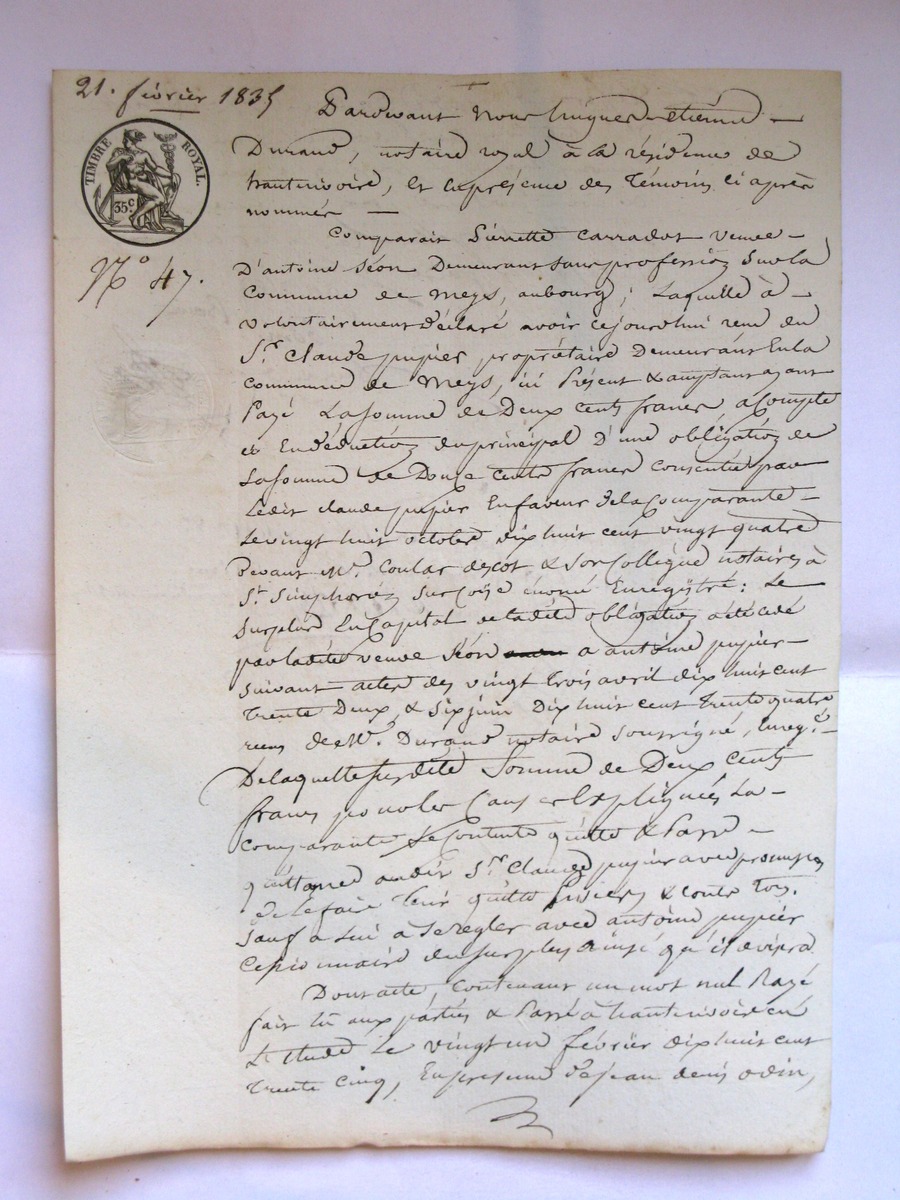 21. février 1835
TIMBRE ROYAL.
35c.
No 47.
Pardevant Nous hugues etienne
Durand, notaire royal à la résidence de
hauterivoire, et enpresence des Témoins ci après
nommés
Comparait Pierrette Carradot veuve
D'antoine Séon Demeurant sans profession sur la
Commune de Meys, aubourg; Laquelle à
volontairement déclaré avoir cejourd'hui reçu du
Sr. Claude pupier propriétaire Demeurant En la
Commune de Meys, ici Présent & acceptant ayant
Payé La somme de Deux Cents francs, a Compte
et En déduction du principal D'une obligation de
La somme de Douze Cents francs Consentie par
Ledit claude pupier En faveur de la Comparante
Le vingt huit octobre dix huit cent vingt quatre
Devant Me. Coular descot & Son Collègue notaires à
St. Simphorien sur Coise Enregistré: Le
Surplus En Capital de ladite obligation a été cédé
par ladite veuve Séon a antoine pupier
Suivant actes des vingt Trois avril dix huit cent
Trente Deux, & Six juin Dix huit Cent Trente quatre
reçus de Me. Durand notaire Soussigné, Enreg.és
De laquelle susdite Somme de Deux Cents
francs pour les Causes Expliquées La
Comparante Se Contente quitte & Passe
quittance audit Sr. Claude pupier avec promesse
de le faire Tenir quitte Envers & contre Tous.
Sauf a Lui à Se régler avec antoine pupier
Cessionnaire du surplus ainsi qu'il avisera
Dont acte, Contenant un mot nul Rayé
fait lu aux parties & Passé à hauterivoire en
L'étude Le vingt un février dix huit cent
Trente Cinq, En présence de jean denis odin,